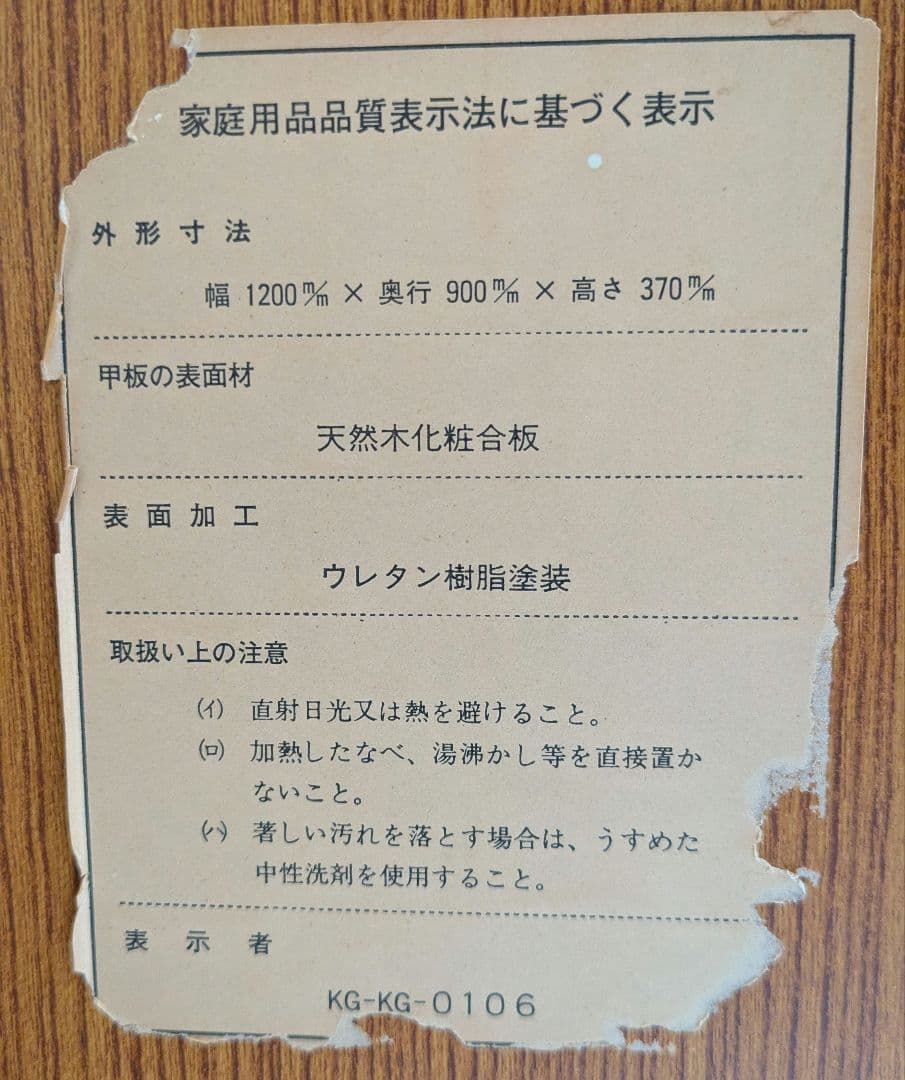 家庭用品品質表示法に基づく表示
外形寸法
幅 1200㎜ × 奥行 900㎜ × 高さ 370㎜
甲板の表面材
天然木化粧合板
表面加工
ウレタン樹脂塗装
取扱い上の注意
(イ) 直射日光又は熱を避けること。
(ロ) 加熱したなべ、湯沸かし等を直接置か
ないこと。
(ハ) 著しい汚れを落とす場合は、うすめた
中性洗剤を使用すること。
表示者
KG-KG-0106